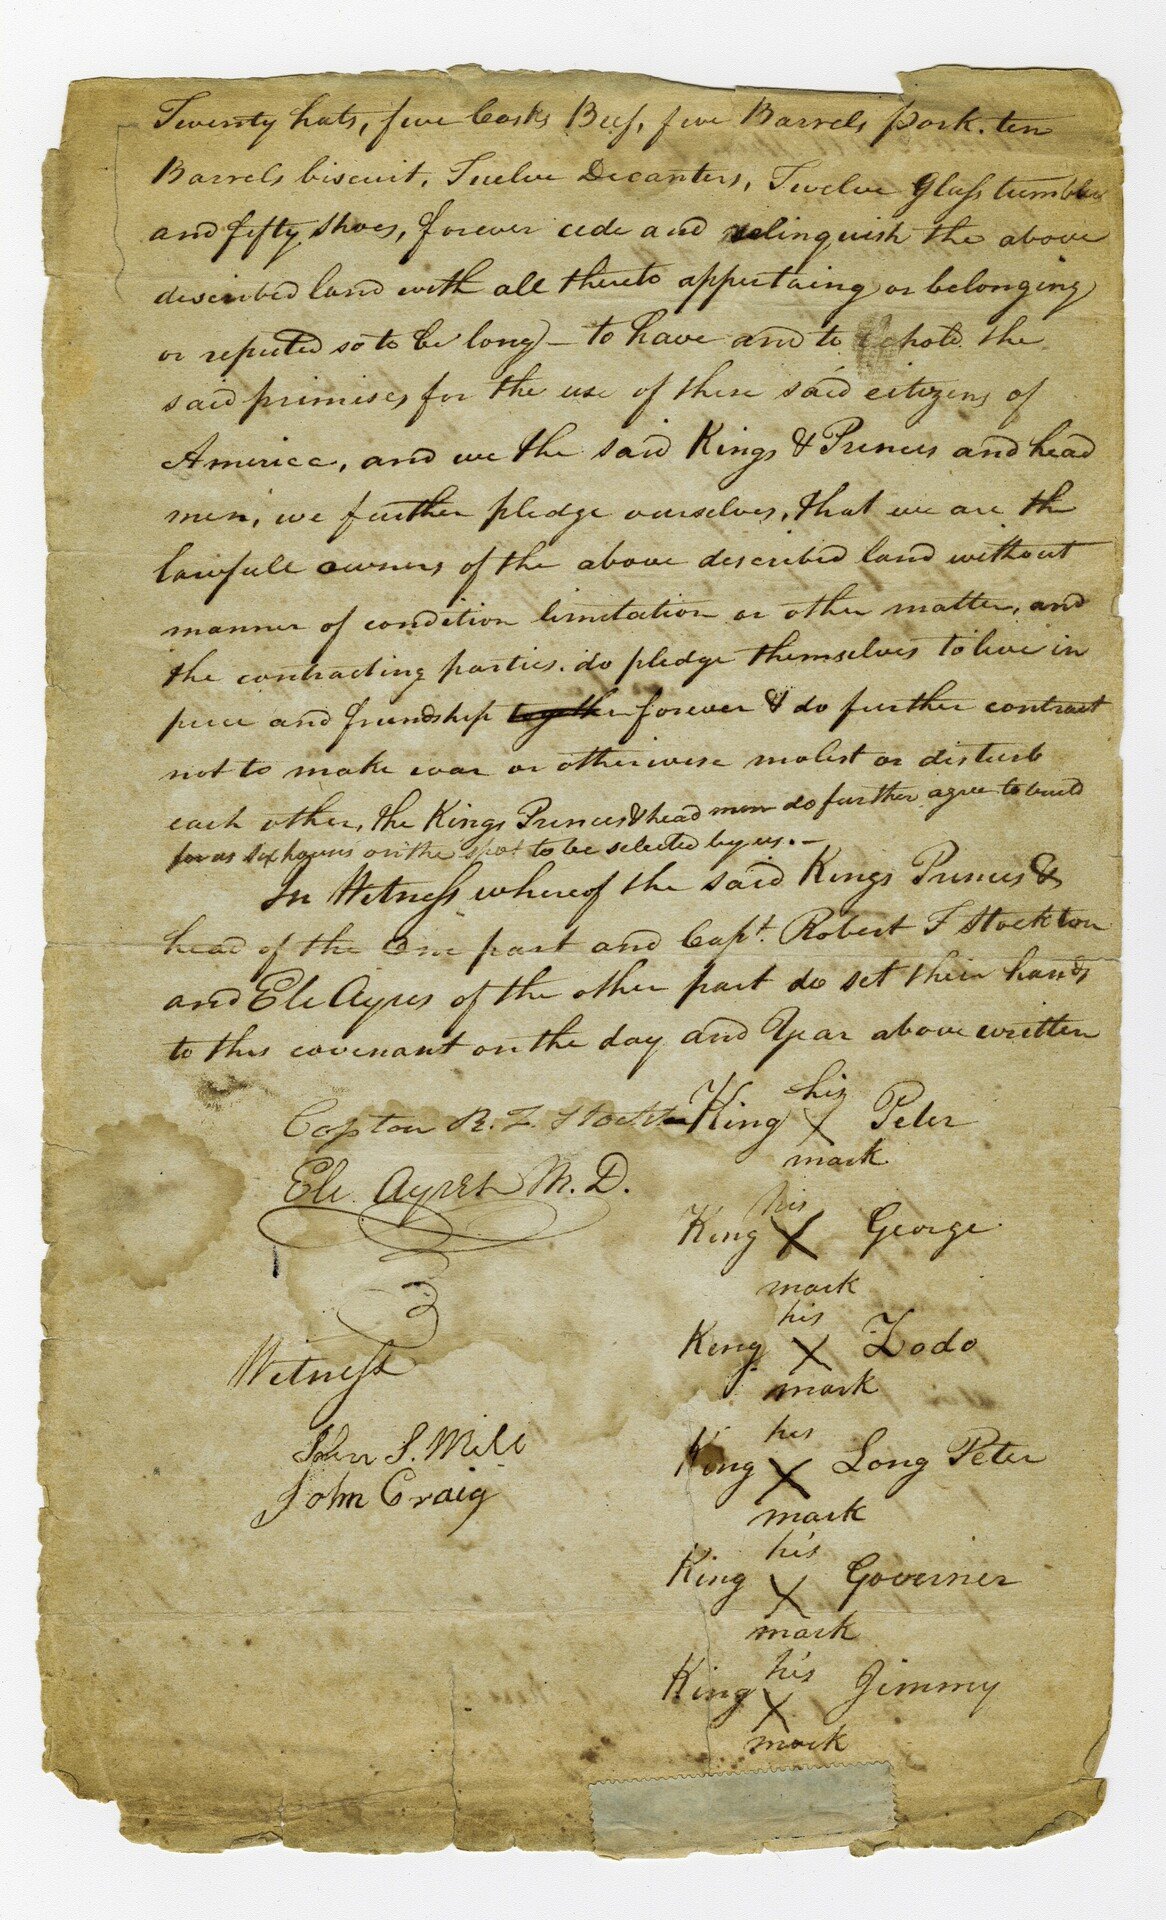 Twenty hats, five Casks Beef, five Barrels pork. ten
Barrels biscuit, Twelve Decanters, Twelve Glass tumblers
and fifty shoes, forever cede and relinquish the above
described land with all thereto appertaing or belonging
or reputed so to be long - to have and to hold the
said primises for the use of these said citizens of
America, and we the said Kings & Princes and head
men, we further pledge ourselves, that we are the
lawfull owners of the above described land without
manner of condition limitation or other matter, and
the contracting parties. do pledge themselves to live in
peace and friendship together forever & do further contract
not to make war or otherwise molest or disturb
each other, the Kings Princes & head men do further agree to build
for us six houses on the spot to be selected by us. -
In Witness whereof the said Kings Princes &
head of the One part and Capt. Robert F Stockton
and Eli Ayres of the other part do set their hands
to this covenant on the day and Year above written
Captan R. F. Stockton
Eli Ayres M.D.
Witness
John S. Mill
John Craig
his
King X Peter
mark
his
King X George
mark
his
King X Zodo
mark
his
King X Long Peter
mark
his
King X Governer
mark
his
King X Jimmy
mark